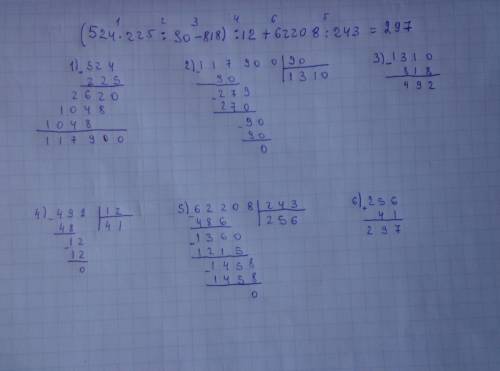 1 2 3 4 6 5
(524·225:90-818):12+62208:243=297
1) 524
225
2620
1048
1048
117900
2) 117900 | 90
90 | 1310
-279
270
-90
90
0
3) -1310
818
492
4) -492 | 12
48 | 41
-12
12
0
5) -62208 | 243
486 | 256
-1360
1215
-1458
1458
0
6) +256
41
297